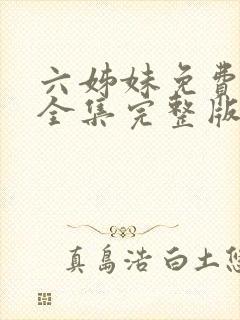 六姊妹免費
全集完整版
真島浩 白土悠